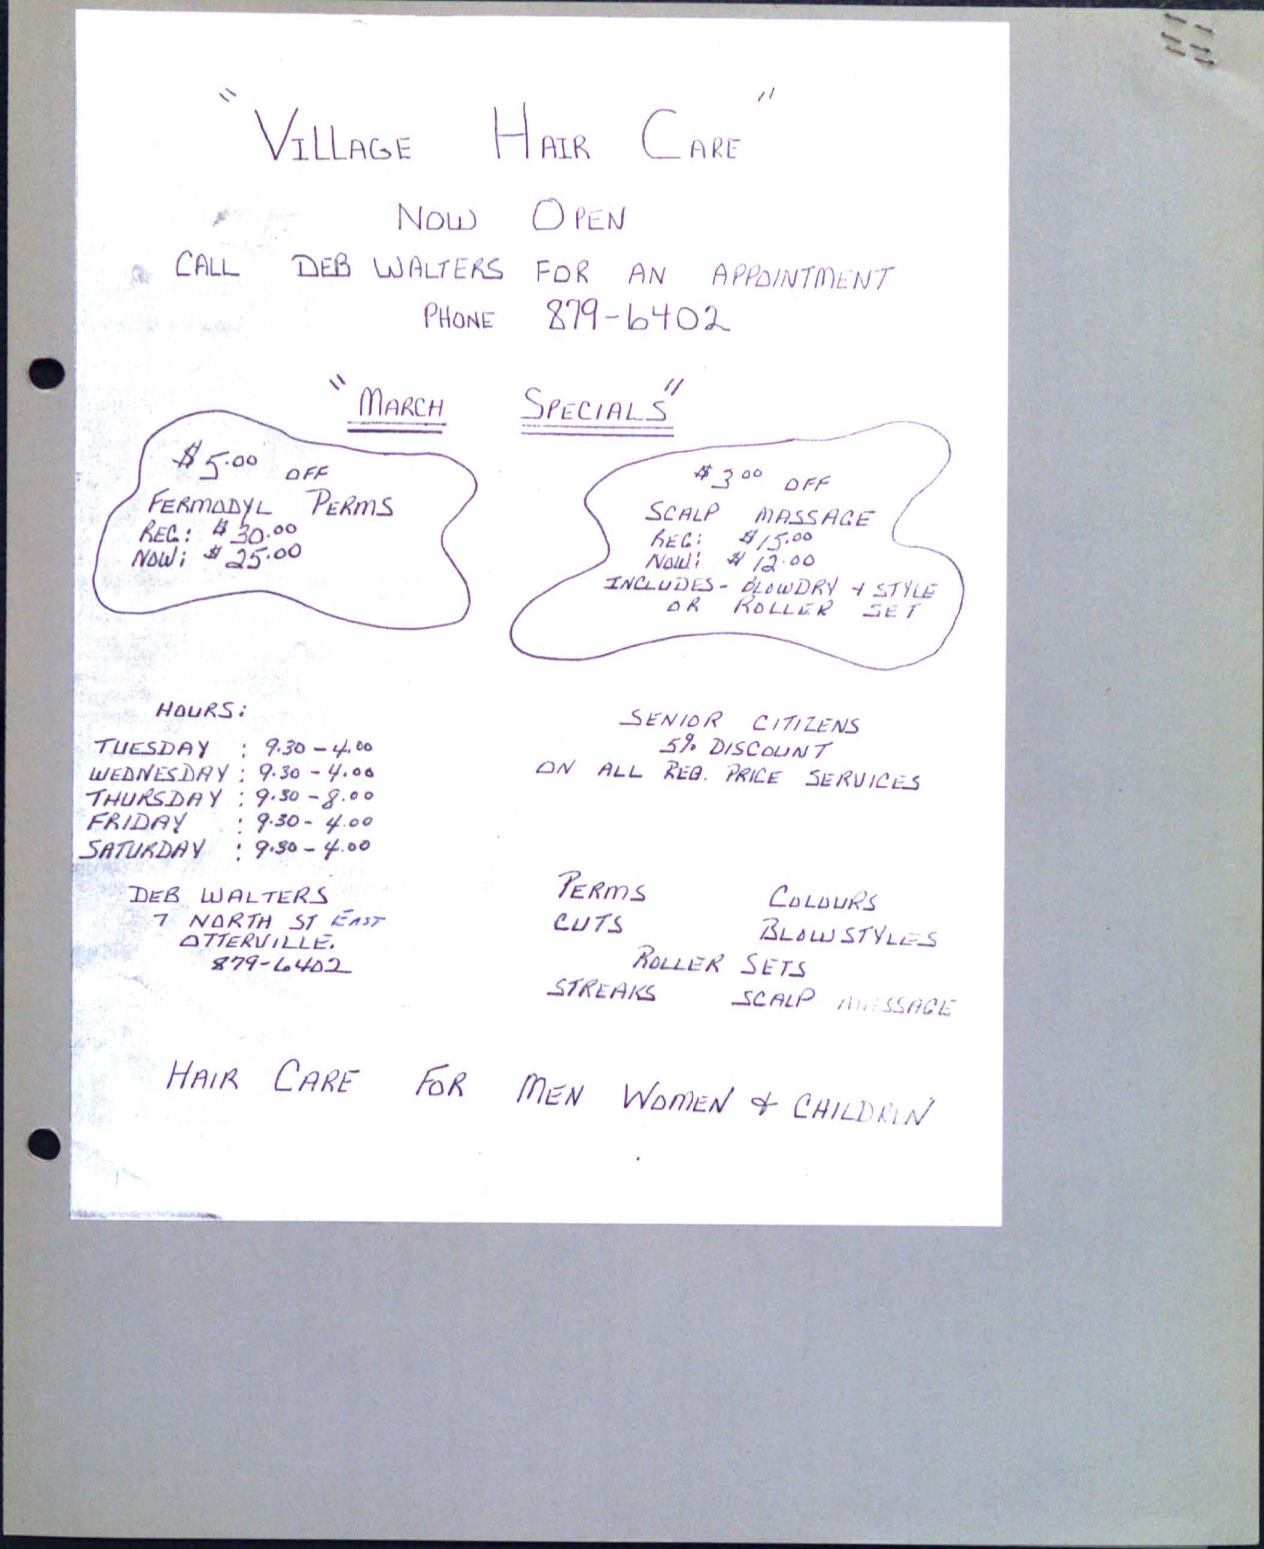 "VILLAGE HAIR CARE"
NOW OPEN
CALL DEB WALTERS FOR AN APPOINTMENT
PHONE 879-6402
"MARCH SPECIALS"
$5.00 OFF
FERMODYL PERMS
REG: $30.00
NOW: $25.00
$3.00 OFF
SCALP MASSAGE
REG: $15.00
NOW: $12.00
INCLUDES - BLOWDRY + STYLE
OR ROLLER SET
HOURS:
TUESDAY : 9.30 - 4.00
WEDNESDAY : 9.30 - 4.00
THURSDAY : 9.30 - 8.00
FRIDAY : 9.30 - 4.00
SATURDAY : 9.30 - 4.00
SENIOR CITIZENS
5% DISCOUNT
ON ALL REG. PRICE SERVICES
DEB WALTERS
7 NORTH ST EAST
OTTERVILLE.
879-6402
PERMS COLOURS
CUTS BLOWSTYLES
ROLLER SETS
STREAKS SCALP MASSAGE
HAIR CARE FOR MEN WOMEN & CHILDREN